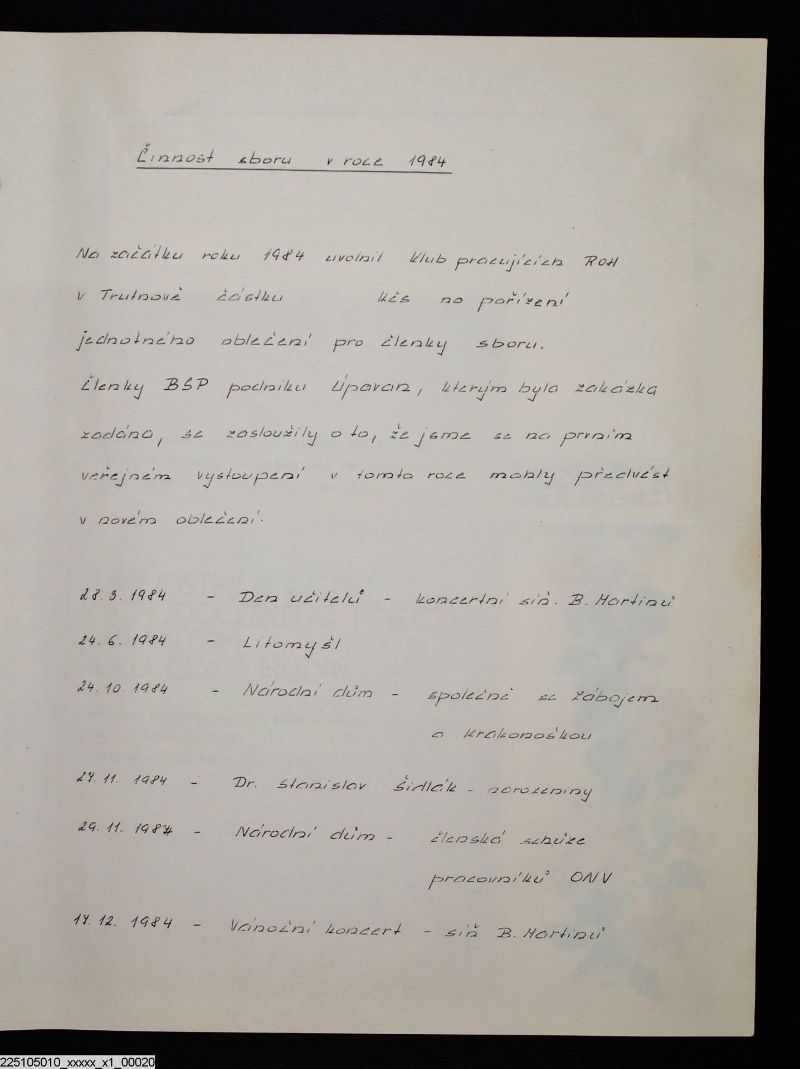 Činnost sboru v roce 1984
Na začátku roku 1984 uvolnil Klub pracujících ROH
v Trutnově částku kčs na pořízení
jednotného oblečení pro členky sboru.
Členky BSP podniku Úpavan, kterým byla zakázka
zadána, se zasloužily o to, že jsme se na prvním
veřejném vystoupení v tomto roce mohly předvést
v novém oblečení.
28.3.1984 - Den učitelů - koncertní síň. B. Martinů
24.6.1984 - Litomyšl
24.10.1984 - Národní dům - společně se Zábojem
a Krakonoškou
27.11.1984 - Dr. Stanislav Šidlák - narozeniny
29.11.1984 - Národní dům - členská schůze
pracovníků ONV
17.12.1984 - Vánoční koncert - síň B. Martinů
225105010_xxxxx_x1_00020